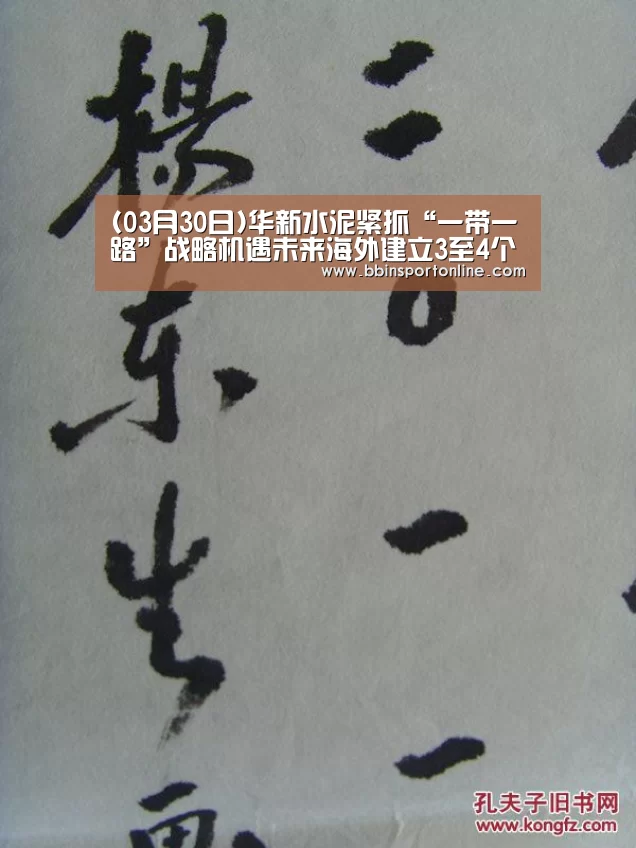 二〇一一
楊东生画
(03月30日)华新水泥紧抓“一带一
路”战略机遇未来海外建立3至4个
www.bbinsportonline.com
孔夫子旧书网
www.kongfz.com